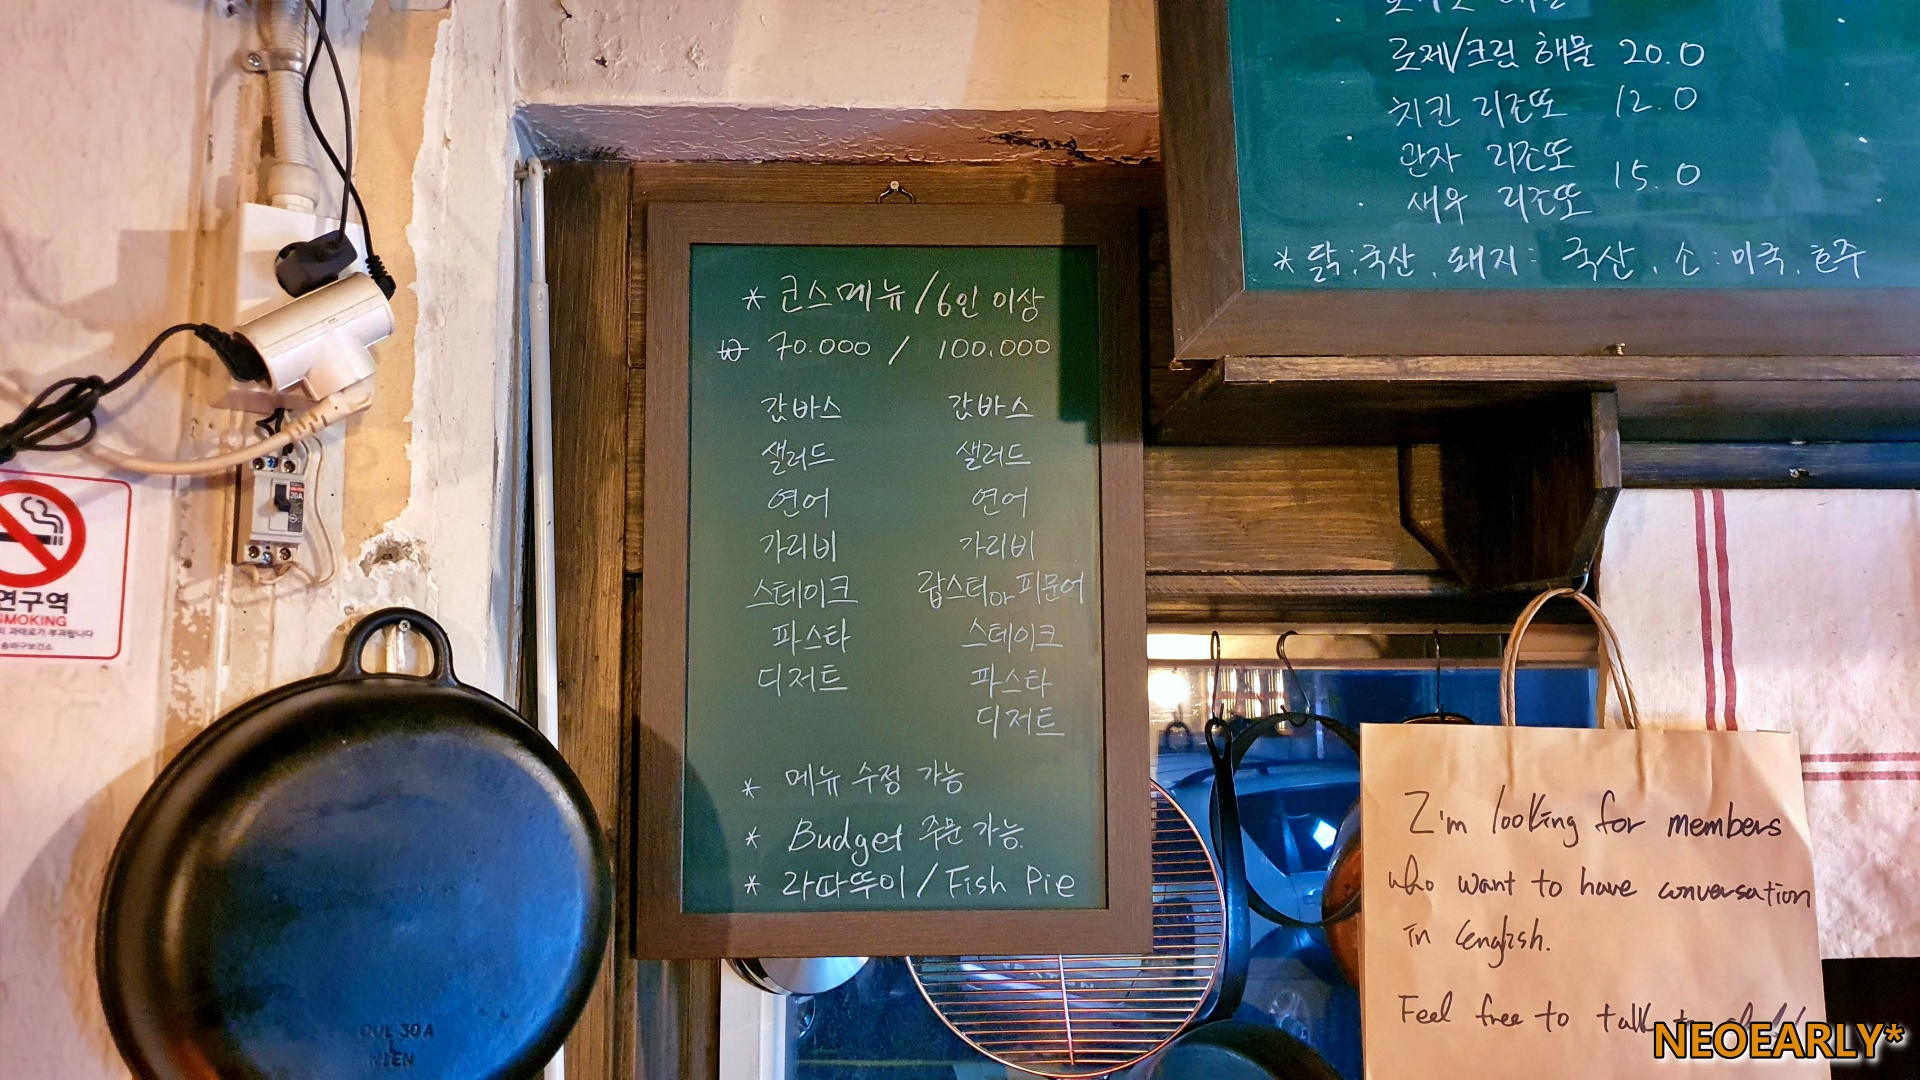 로제/크림 해물 20.0
치킨 리조또 12.0
관자 리조또
새우 리조또 15.0
* 닭:국산, 돼지: 국산, 소:미국, 호주
* 코스메뉴/6인 이상
₩ 70.000 / 100.000
감바스 감바스
샐러드 샐러드
연어 연어
가리비 가리비
스테이크 랍스터or피문어
파스타 스테이크
디저트 파스타
디저트
* 메뉴 수정 가능
* Budget 주문 가능.
* 라따뚜이/Fish Pie
20A
연구역
SMOKING
과태료가 부과됩니다
송파구보건소
30A
I'm looking for members
who want to have conversation
in English.
Feel free to talk to
NEOEARLY*